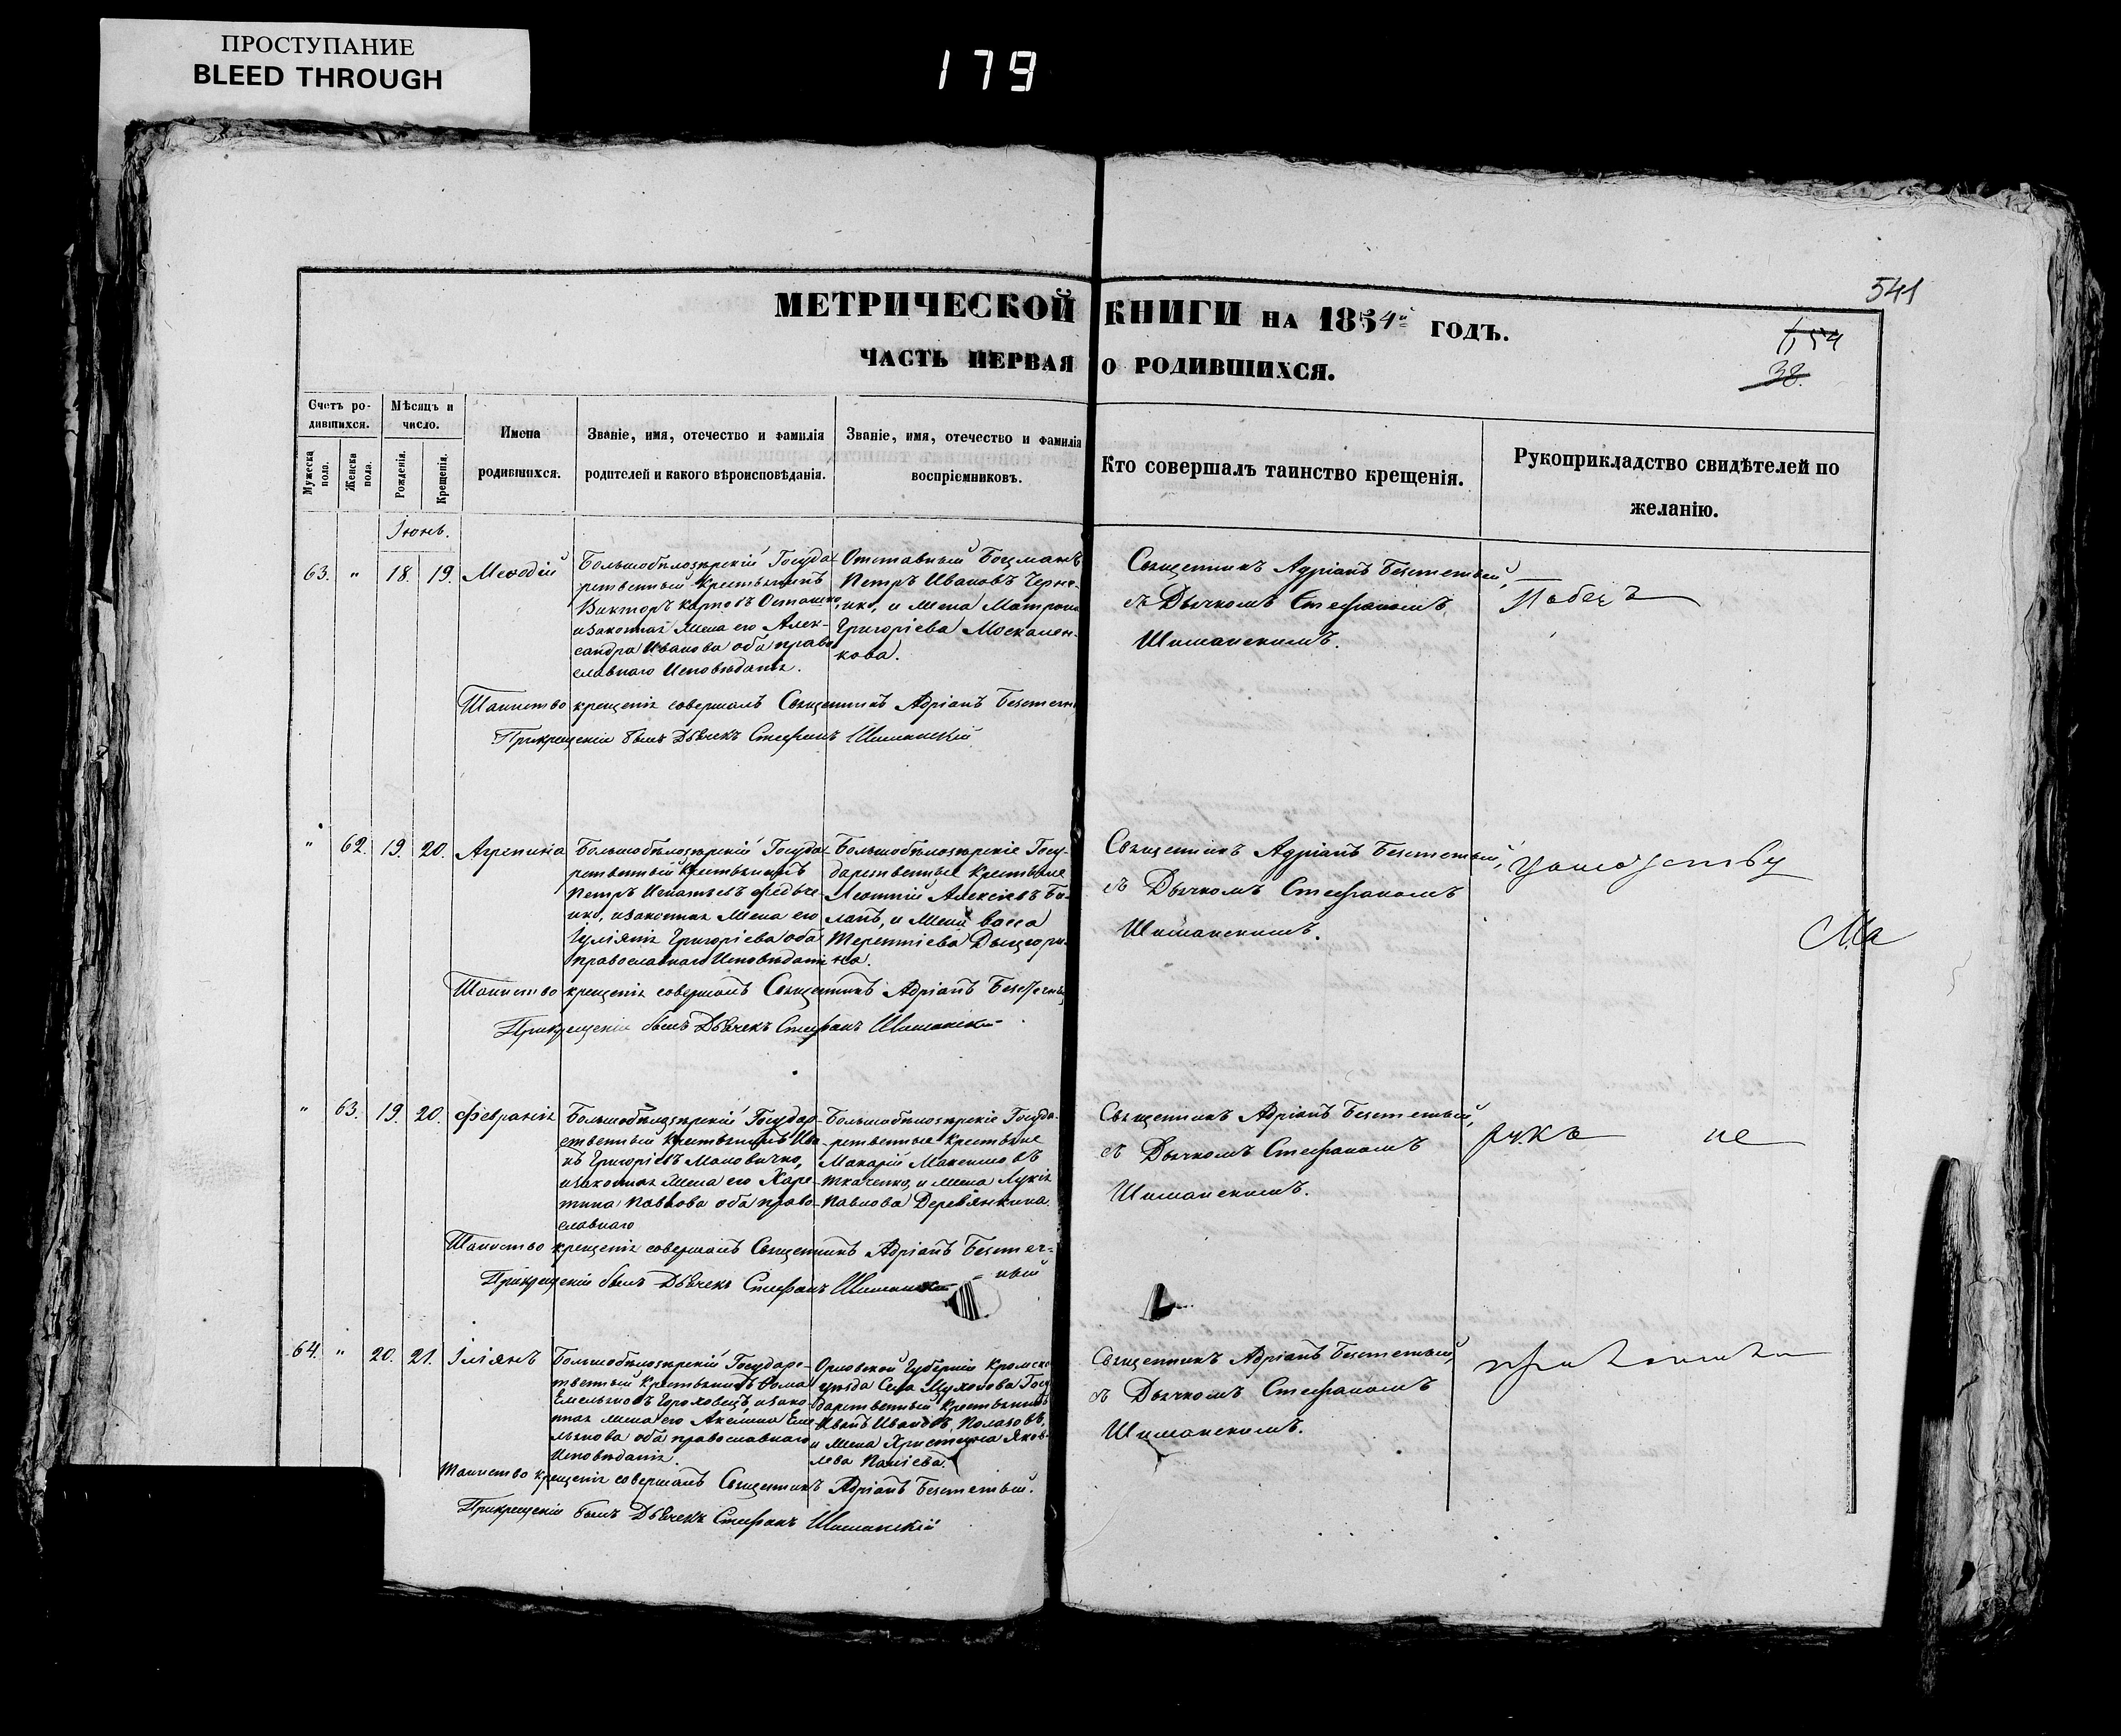 ПРОСТУПАНИЕ
BLEED THROUGH
179
541
МЕТРИЧЕСКОЙ КНИГИ НА 1854й ГОДЪ.
ЧАСТЬ ПЕРВАЯ О РОДИВШИХСЯ.
38.
Счетъ ро-
дившихся.
Мужеска пола.
Женска пола.
Мѣсяцъ и
число.
Рожденія.
Крещенія.
Имена
родившихся.
Званіе, имя, отечество и фамилія
родителей и какого вѣроисповѣданія.
Званіе, имя, отечество и фамилія
воспріемниковъ.
Кто совершалъ таинство крещенія.
Рукоприкладство свидѣтелей по
желанію.
Іюнь.
63. " 18. 19. Меѳодій
Большобѣлозѣрскій Госуда-
рственный Крестьянинъ
Викторъ Карповъ
изаконная жена его Алек-
сандра Иванова оба право
славнаго Исповѣданія.
Отставный Боцманъ
Петръ Ивановъ Черне-
нко, и жена Матрона
Григоріева Москален-
кова.
Священникъ Адріанъ
съ Дьячкомъ Стефаномъ
Шиманскимъ.
Таинство крещенія совершалъ Священникъ Адріанъ
Прикрещеніи былъ Дьячекъ Стефанъ Шиманскій
" 62. 19. 20. Агрепина
Большобѣлозѣрскій Госуда-
рственный Крестьянинъ
Петръ Игнатьевъ Федче-
нко, изаконная жена его
Іуліянія Григоріева оба
православнаго Исповѣдані
Большобѣлозѣрскіе Госу-
дарственные Крестьяне
Леонтій Алексіевъ Би-
ланъ, и жена Васса
Терентіева Дьщори-
на.
Священникъ Адріанъ
съ Дьячкомъ Стефаномъ
Шиманскимъ.
Таинство крещенія совершалъ Священникъ Адріанъ
Прикрещеніи былъ Дьячекъ Стефанъ Шиманскій
" 63. 19. 20. Февранія
Большобѣлозѣрскій Государ-
ственный Крестьянинъ Ива
нъ Григоріевъ Маловичко,
изаконная жена его Харе-
тина Павлова оба право-
славнаго
Большобѣлозѣрскіе Госуда-
рственные Крестьяне
Макарій Максимовъ
Ткаченко, и жена Лукія
Павлова Деревянкина.
Священникъ Адріанъ
съ Дьячкомъ Стефаномъ
Шиманскимъ.
рукъ не
Таинство крещенія совершалъ Священникъ Адріанъ
Прикрещеніи былъ Дьячекъ Стефанъ
64. " 20. 21. Іліянъ
Большобѣлозѣрскій Государс-
твенный Крестьянинъ Ѳома
Емельяновъ Гороховецъ, изако-
нная жена его Акелина Еме-
льянова оба православнаго
Исповѣданія.
Орловской Губерніи Кромско
уѣзда Села Мухолова Госу
дарственный Крестьянинъ
Иванъ Ивановъ Полаховъ,
и жена Христина Яков-
лева Паліева.
Священникъ Адріанъ
съ Дьячкомъ Стефаномъ
Шиманскимъ.
Таинство крещенія совершалъ Священникъ Адріанъ
Прикрещеніи былъ Дьячекъ Стефанъ Шиманскій